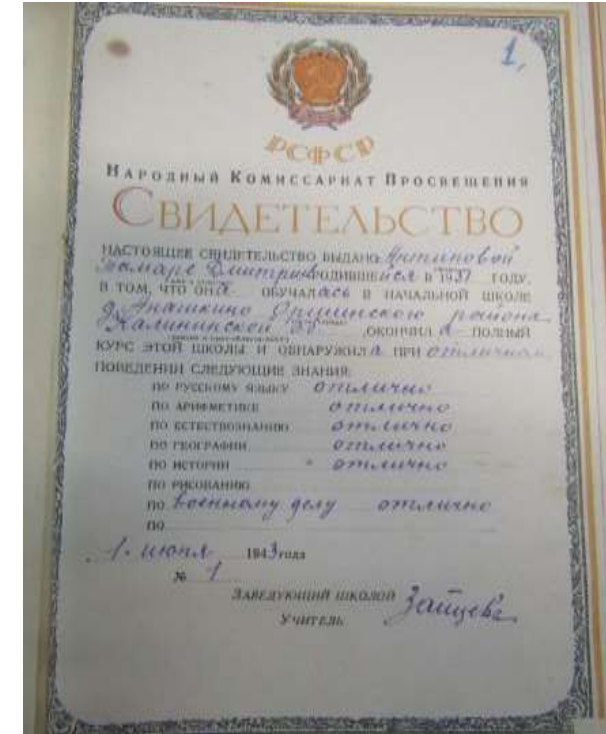 1.
РСФСР
Народный Комиссариат Просвещения
Свидетельство
Настоящее свидетельство выдано Антиповой
Тамаре Дмитрив родившейся в 1931 году,
в том, что она обучалась в начальной школе
д. Анашкино Оршинского района
Калининской окончила полный
курс этой школы и обнаружила при отличном
поведении следующие знания:
по русскому языку отлично
по арифметике отлично
по естествознанию отлично
по географии отлично
по истории отлично
по рисованию
по военному делу отлично
по
1. июня 1943 года
№ 1
Заведующий школой Зайцева
Учитель